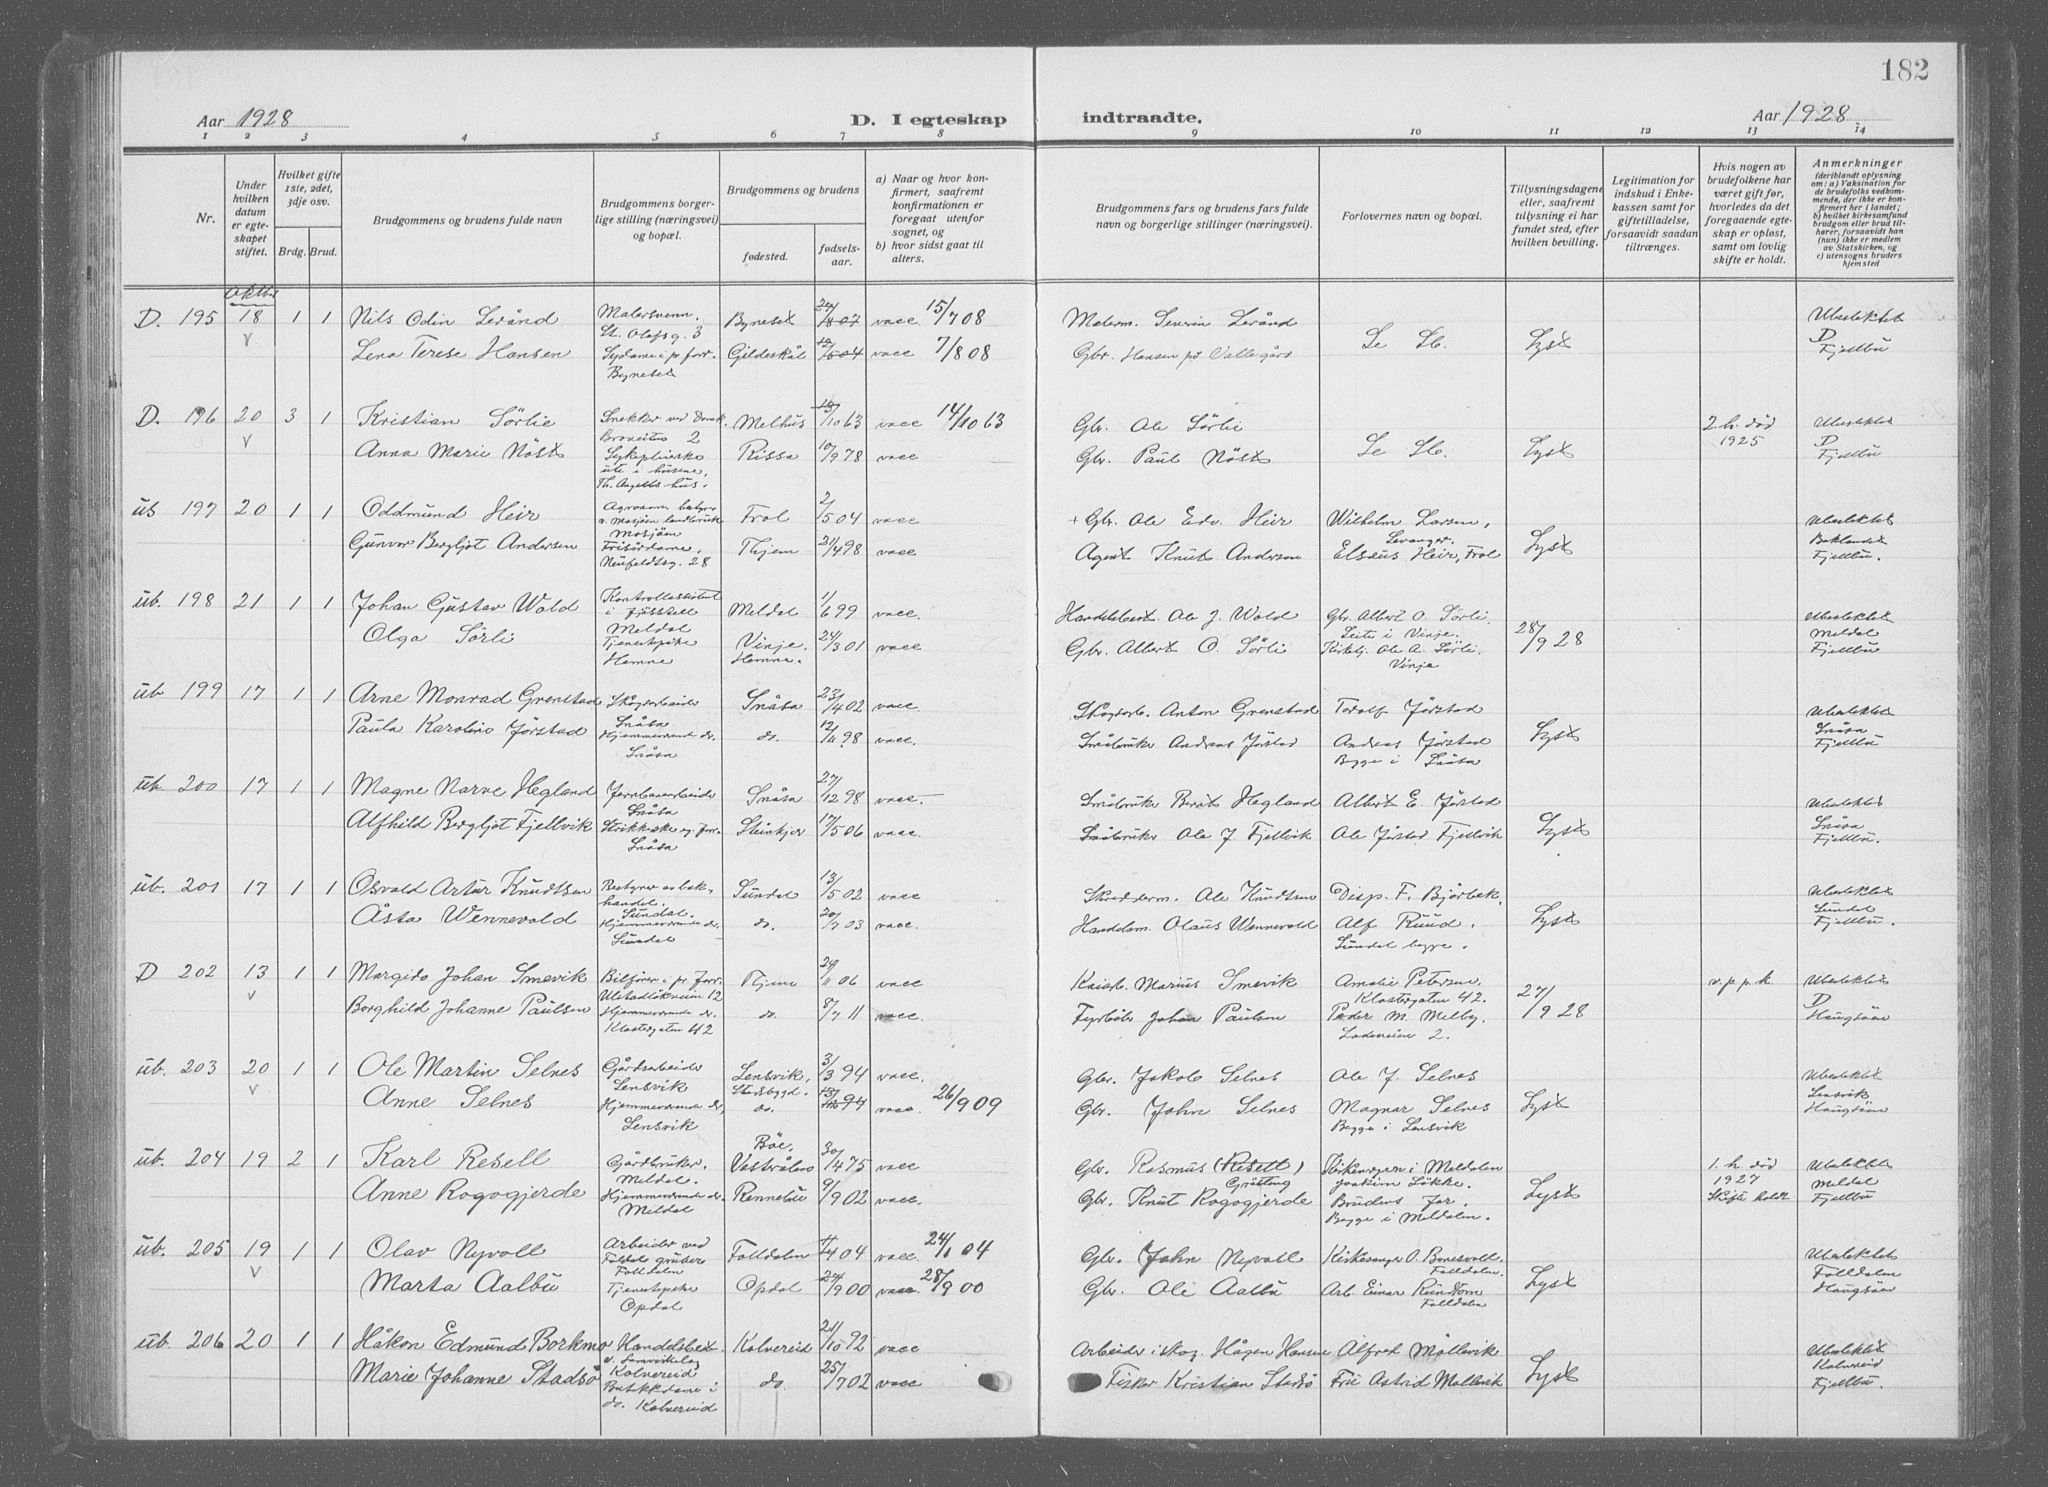 182
Aar 1928
D. I egteskap
indtraadte.
Aar 1928
1 2 3 4 5 6 7 8 9 10 11 12 13 14
Nr.
Under hvilken datum er egteskapet stiftet.
Hvilket gifte 1ste, 2det, 3dje osv.
Brdg. Brud.
Brudgommens og brudens fulde navn
Brudgommens borgerlige stilling (næringsvei) og bopæl.
Brudgommens og brudens
fødested.
fødselsaar.
a) Naar og hvor konfirmert, saafremt konfirmationen er foregaat utenfor sognet, og
b) hvor sidst gaat til alters.
Brudgommens fars og brudens fars fulde navn og borgerlige stillinger (næringsvei).
Forlovernes navn og bopæl.
Tillysningsdagene eller, saafremt tillysning ei har fundet sted, efter hvilken bevilling.
Legitimation for indskud i Enkekassen samt for giftetilladelse, forsaavidt saadan tiltrænges.
Hvis nogen av brudefolkene har været gift før, hvorledes da det foregaaende egteskap er opløst, samt om lovlig skifte er holdt.
Anmerkninger
(deriblandt oplysning om: a) Vaksination for de brudefolks vedkommende, der ikke er konfirmert her i landet; b) hvilket kirkesamfund brudgom eller brud tilhører, forsaavidt han (hun) ikke er medlem av Statskirken, og c) utensogns bruders hjemsted
D. 195 18 1 1 Nils Odin Leränd Malersvenn. St. Olafsg. 3 Byneset vacc 15/7 08 Malerm. Severin Leränd Ubeslektet
Lena Terese Hansen Sydame i p. forr. Byneset Gildeskål vacc 7/8 08 Gbr. Hansen på Vallegård Se Sb. Lyst D Fjellbu
D. 196 20 3 1 Kristian Sörlie Melhus 10 63 vacc 14/10 63 Gbr. Ole Sörli 2. h. död 1925 Ubeslektet
Anna Marie Nöst Sykepleierske ute i husene, Th. Angells hus. Rissa 10/9 78 vacc Gbr. Paul Nöst Se Sb. Lyst D Fjellbu
ub 197 20 1 1 Oddmund Heir Mosjöen Frol 2/5 04 vacc + Gbr. Ole Edv. Heir Wilhelm Larsen, Levanger. Ubeslektet
Gunvor Bergljot Andersen Frisördame, Neufeldtsg. 28 Thjem 21/4 98 vacc Agent Knut Andersen Elseus Heir, Frol Lyst Baklandet Fjellbu.
ub. 198 21 1 1 Johan Gustav Wold Kontrollassistent Meldal Meldal 1/6 99 vacc Handelsbest. Ole J. Wold Gbr. Albert O. Sörli. Ubeslektet
Olga Sörli Tjenestepike Hemne Vinje. Hemne. 24/3 01 vacc Gbr. Albert O. Sörli Kirketj. Ole A. Sörli. Vinje 28/9 28 Meldal Fjellbu
ub 199 17 1 1 Arne Monrad Grenstad Skogsarbeider Snåsa Snåsa 23/4 02 vacc. Skogsarb. Anton Grenstad Todolf Jörstad Ubeslektet
Paula Karolino Jörstad Hjemmeværende do. Snåsa do. 12/11 98 vacc. Småbruker Andreas Jörstad Andreas Jörstad Begge i Snåsa Lyst Snåsa Fjellbu
ub. 200 17 1 1 Magne Narve Hegland Jernbanearbeider Snåsa Snåsa 27/12 98 vacc. Småbruker Bernt Hegland Albert E. Jörstad Ubeslektet
Alfhild Bergljot Fjellvik Strikkeske eg. forr. Snåsa Steinkjer 17/5 06 vacc. Småbruker Ole J. Fjellvik Ole Jörstad Fjellvik Lyst Snåsa Fjellbu.
ub. 201 17 1 1 Osvald Artur Knudtsen Bestyrer av bokhandel. Sundal. Sundal 13/5 02 vacc Skredderm. Ole Knudtsen Disp. F. Bjørbek. Ubeslektet
Åsta Wennevold Hjemmeværende do. Sundal do. 20/7 03 vacc. Handelsm. Olaus Wennevold Alf Ruud. Sundal begge. Lyst Sundal Fjellbu.
D 202 13 1 1 Margido Johan Smevik Bilförer i p. forr. Ulstadlökveien 12 Thjem 29/11 06 vacc Marius Smevik Amalie Petersen Klostergaten 42. v. p. p. k. Ubeslektet
Borghild Johanne Paulsen Hjemmeværende do. Klostergaten 42 do. 8/7 11 vacc. Fyrböter Johan Paulsen Peder M. Melby. Ladeveien 2. 27/9 28 D Haugsöen
ub. 203 20 1 1 Ole Martin Selnes Gårdsarbeider Lensvik Lensvik. 3/3 94 vacc. Gbr. Jakob Selnes Ole J. Selnes Ubeslektet
Anne Selnes Hjemmeværende do. Lensvik Stadsbygd. do. 94 vacc. 26/9 09 Gbr. John Selnes Magnar Selnes Begge i Lensvik Lyst Lensvik Haugsöen
ub. 204 19 2 1 Karl Resell Gårdbruker. Meldal. Böe, Vesterålen 30/4 75 vacc Gbr. Rasmus (Resell) Kirkesanger i Meldalen Joakim Lökke. 1. h. död 1927 Skifte holdt Ubeslektet
Anne Rogogjerde Hjemmeværende do. Meldal Rennebu 9/9 02 vacc. Gbr. Knut Rogogjerde Brudens far. Begge i Meldalen. Lyst Meldal Fjellbu
ub. 205 19 1 1 Olav Nyvoll Arbeider ved Foldal gruber Folldalen Folldalen 04 vacc. 24/1 04 Gbr. John Nyvoll Kirkesanger O. Bonesvoll. Folldalen. Ubeslektet
Marta Aalbu Tjenestepike Opdal Opdal 9 00 vacc. 28/9 00 Gbr. Ole Aalbu Arb. Einar Rundtom Folldalen Lyst Folldalen Haugsöen
ub. 206 20 1 1 Håkon Edmund Borkmo Handelsbest. Kolvereid Kolvereid 21/10 92 vacc Arbeider i skog. Hågen Hansen Alfred Möllevik Ubeslektet
Marie Johanne Stadsö Butikkdame i do. Kolvereid do. 25/7 02 vacc Fisker Kristian Stadsö Fru Astrid Mollevik Lyst Kolvereid Fjellbu.